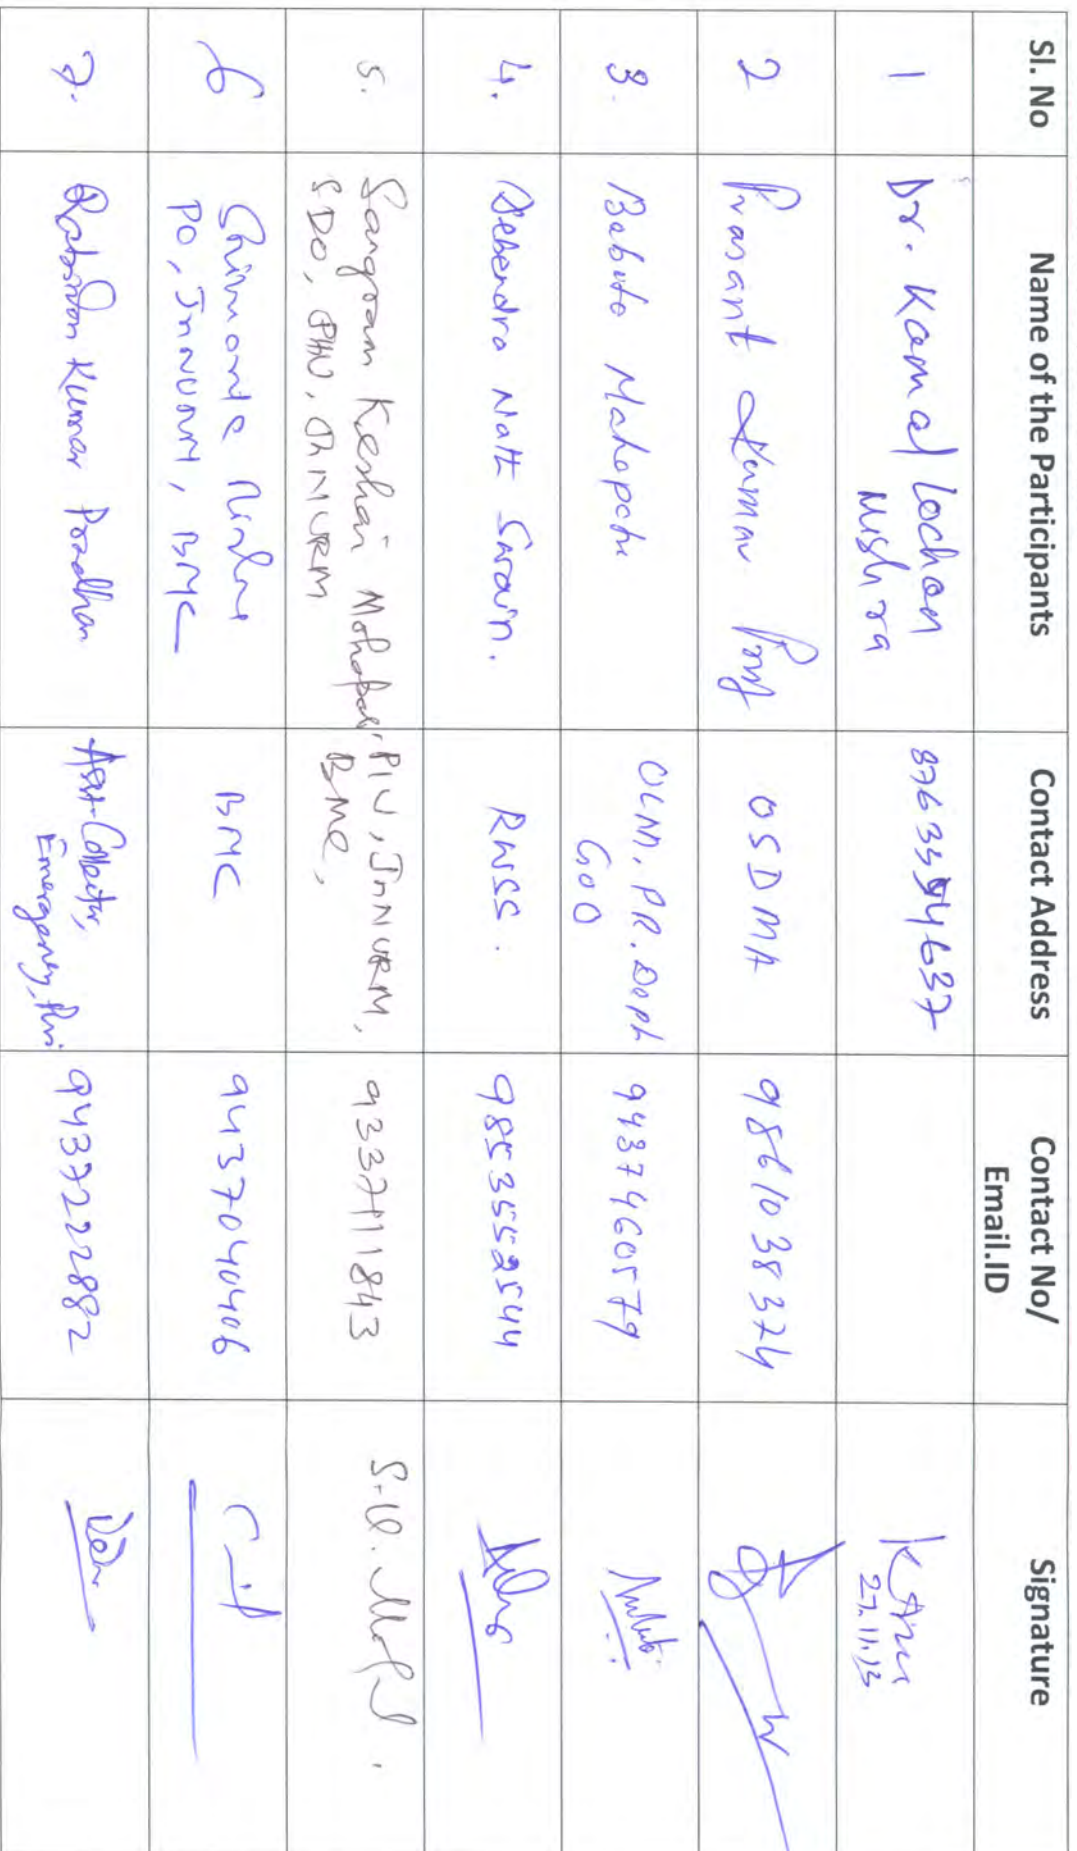 Sl. No Name of the Participants Contact Address Contact No/ Email.ID Signature
1 Dr. Kamal Lochan Mishra 8763354637 27.11.13
2 Prasant Kumar OSDMA 9861038374
3. Babuto Mahapatra OLM, PR. Dept GoO 9437460579
4. Debendra Nath Swain. RWSS. 9853552544
5. Sangram Keshari Mohapatra SDO, PIU, JnNURM PIU, JnNURM, BMC, 9337111843
6 PO, JnNURM, BMC BMC 9437040406
7. Kumar Pradhan Asst-Collector, Emergency, Puri 9437222882